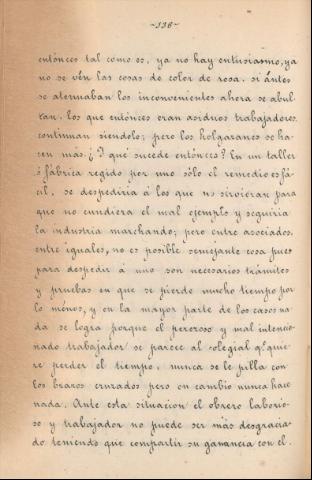 -136-
entónces tal como es, ya no hay entusiasmo, ya
no se vén las cosas de color de rosa. si ántes
se atenuaban los inconvenientes ahora se abul-
tan. los que entónces eran asiduos trabajadores
continuan siendolo; pero los holgazanes se ha-
cen más. ¿Y qué sucede entónces? En un taller
ó fábrica regido por uno sólo el remedio es fá-
cil, se despediria á los que no sirvieran para
que no cundiera el mal ejemplo y seguiria
la industria marchando; pero entre asociados,
entre iguales, no es posible semejante cosa pues
para despedir á uno son necesarios trámites
y pruebas en que se pierde mucho tiempo por
lo ménos, y en la mayor parte de los casos na-
da se logra porque el perezoso y mal intencio-
nado trabajador se parece al colegial q.e quie-
re perder el tiempo, nunca se le pilla con
los brazos cruzados pero en cambio nunca hace
nada. Ante esta situacion el obrero laborio-
so y trabajador no puede ser más desgracia-
do teniendo que compartir su ganancia con el.